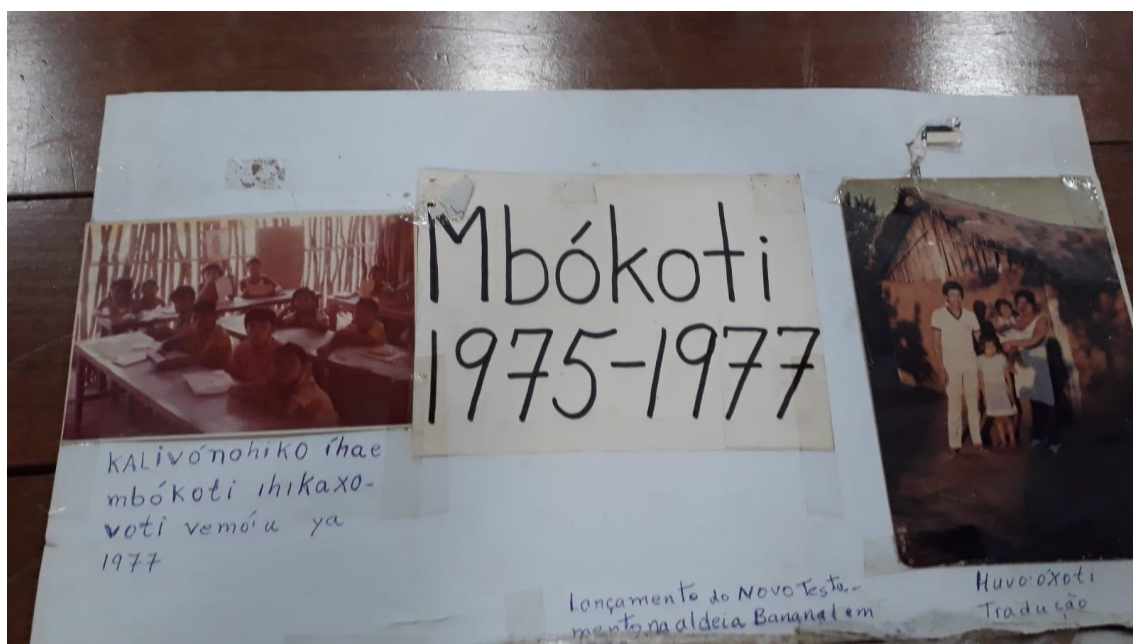 Mbókoti
1975-1977
KALivónohiko íhae
mbókoti ihikaxo-
voti vemó'u ya
1977
Lançamento do Novo Testa-
mento na aldeia Bananal em
Huvo'óxoti
Tradução